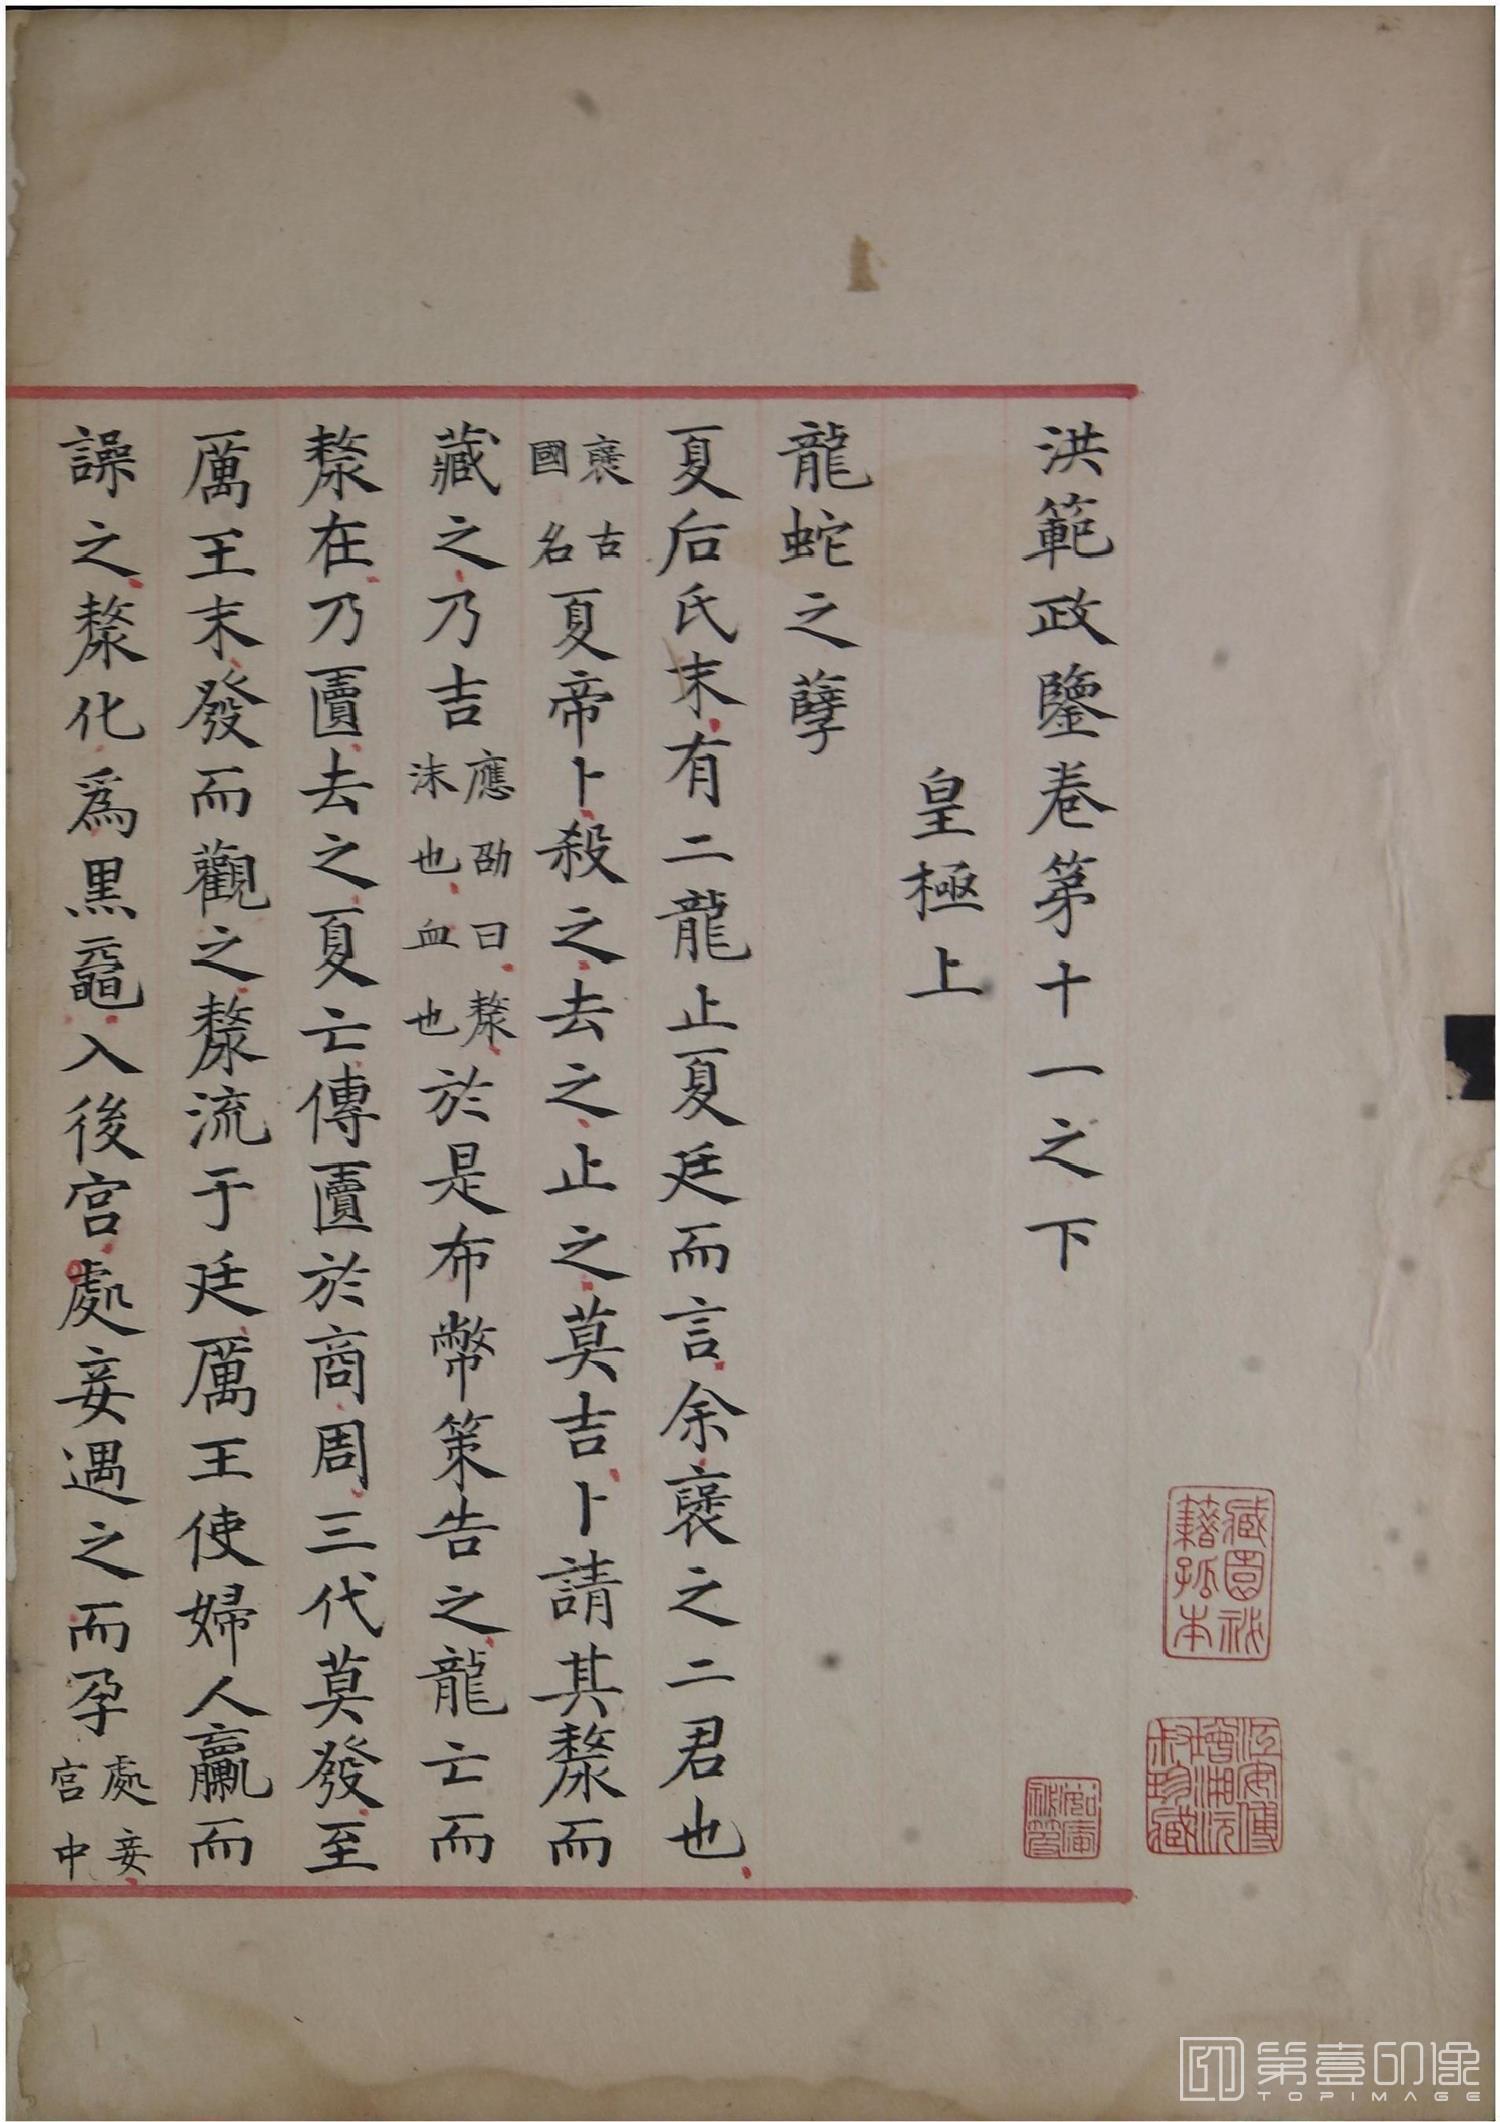 洪範政鑒卷第十一之下
皇極上
龍蛇之孽
夏后氏末有二龍止夏廷而言余襃之二君也
襃古國名夏帝卜殺之去之止之莫吉卜請其漦而
藏之乃吉應劭曰漦沫也血也於是布幣策告之龍亡而
漦在乃匵去之夏亡傳匵於商周三代莫發至
厲王末發而觀之漦流于廷厲王使婦人臝而
譟之漦化為黑黿入後宮處妾遇之而孕處妾宮中
藏園祕籍孤本
江安傅增湘沅叔珍藏
第壹印像
TOPIMAGE